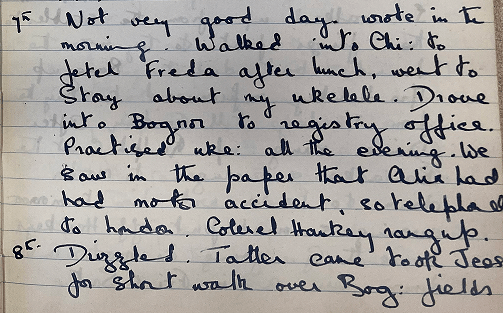 7th Not very good day. wrote in the
morning. Walked into Chi: to
fetch Freda after lunch, went to
Story about my ukelele. Drove
into Bognor to registry office.
Practised uke: all the evening. We
saw in the paper that had
had motor accident, so telephoned
to London. Colonel Hankey rang up.
8th. Drizzled. Tatler came took Jess
for short walk over Bog: fields